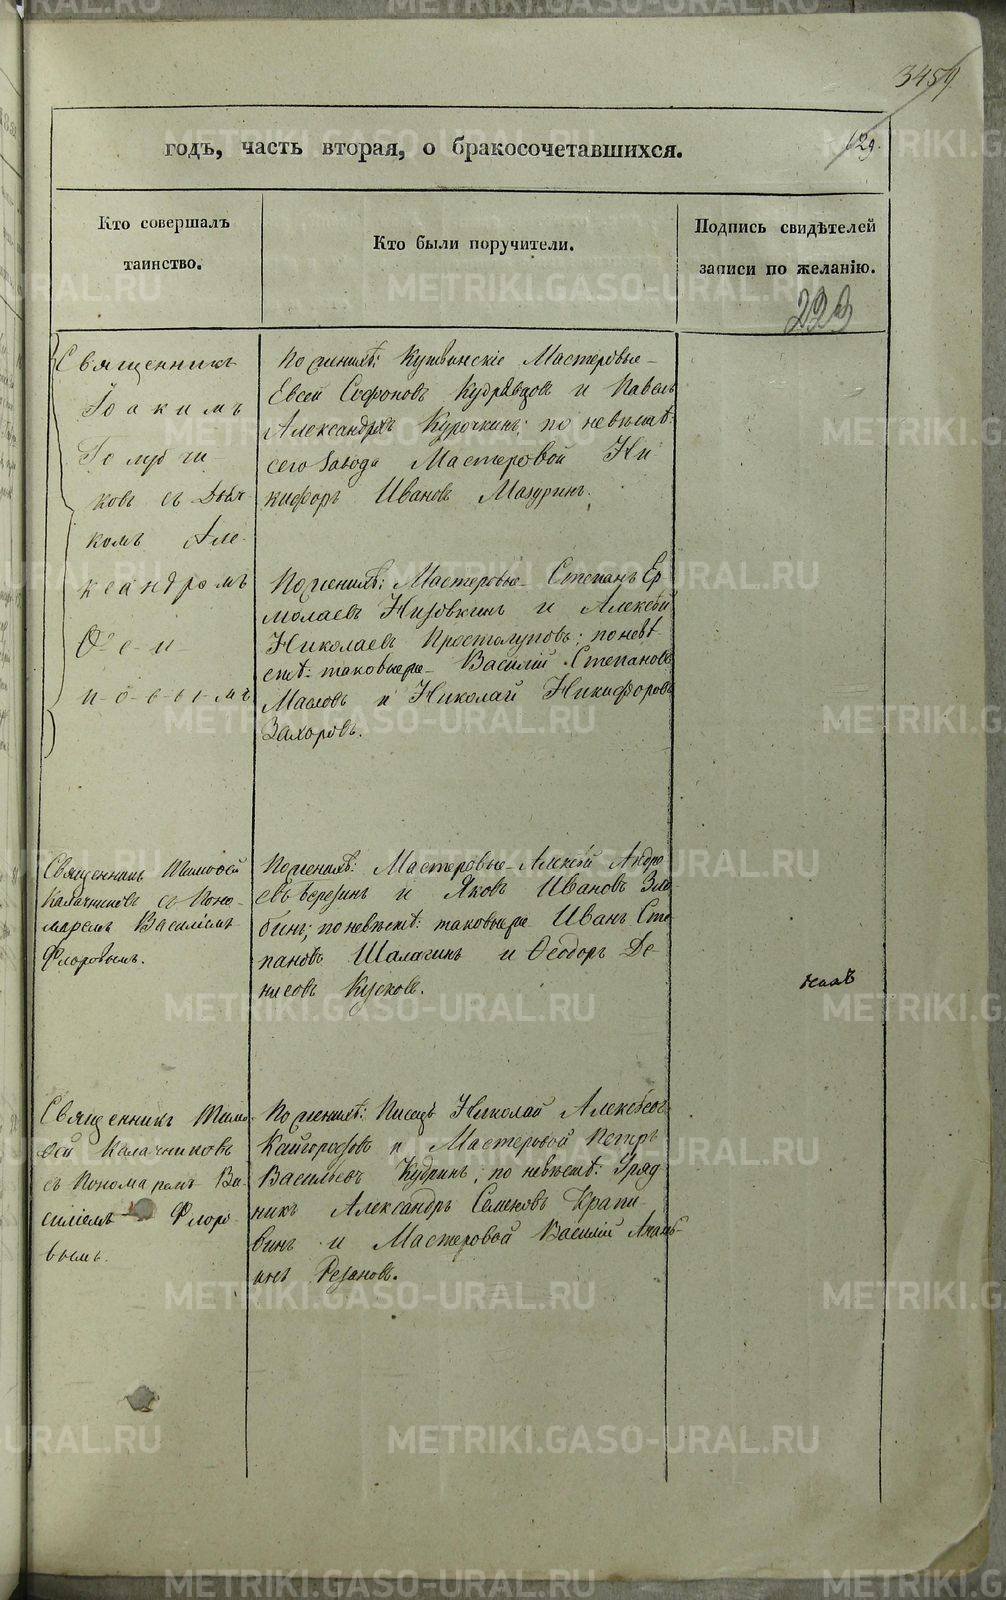 3459.
годъ, часть вторая, о бракосочетавшихся.
129.
Кто совершалъ
таинство.
Кто были поручители.
Подпись свидѣтелей
записи по желанію.
223
Священникъ
Іоакимъ
Голубчи-
ковъ съ Дьяч
комъ Але-
ксандромъ
Ѳе-и-
п-о-в-ы-мъ
По женихѣ: Кушвинскіе Мастеровые
Евсей Софоновъ Кудрявцовъ и Павелъ
Александръ Курочкинъ; по невѣстѣ:
сего Завода Мастеровой Ни
кифоръ Ивановъ Мазуринъ.
По женихѣ: Мастеровые Степанъ Ер
молаевъ Низовкинъ и Алексѣй
Николаевъ Простолуповъ; по невѣ-
стѣ: таковые же Василій Степановъ
Масловъ и Николай Никифоровъ
Захаровъ.
Священникъ Тимоѳей
Калачниковъ съ Поно-
маремъ Василіемъ
Флоровымъ.
По женихѣ: Мастеровые Алексѣй Андре
евъ Березинъ и Яковъ Ивановъ Зло-
бинъ; по невѣстѣ: таковые же Иванъ Сте
пановъ Шалагинъ и Ѳеодоръ Де-
нисовъ Кусковъ.
Священникъ Тимо
ѳей Калачниковъ
съ Пономаремъ Ва
силіемъ Флоро-
вымъ.
По женихѣ: Писецъ Николай Алексѣевъ
Кайгородовъ и Мастеровой Петръ
Васильевъ Кудринъ; по невѣстѣ: Уряд
никъ Александръ Семеновъ Крапи-
винъ и Мастеровой Василій Анань-
инъ Резановъ.
METRIKI.GASO-URAL.RU